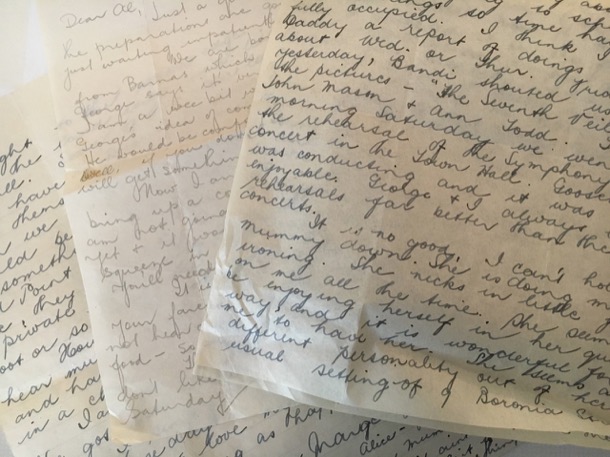 Dear Al, Just a
the preparations are go
just waiting impatient
We are bo
from Barnas which
George says it
I am a wee bit
George's idea of com
He would be comf
will get somethin
Now I am
bring up a co
am not going
yet & it wou
squeeze in
You'll need
It i
your Jan
not hear
for - so
don't like
Saturday
fully occupied. I think I
Daddy a report of doings
about Wed. or Thur.
yesterday, Bandi shouted us
the pictures - "the Seventh Veil
John Mason & Ann Todd.
morning Saturday we wen
the rehearsal of the Symphony
concert in the Town Hall. Gooss
was conducting and it was
enjoyable. George & I always
rehearsals far better than the
concerts.
It is no good, I can't ho
mummy down. She is doing m
ironing. She nicks in little
on me all the time. She seem
be enjoying herself in her qu
way and it is wonderful fo
me to have her. She seems a
different personality out of he
usual setting of Boronia
ght
the
have
thems
we
uld be
something
Point
they
private
oot or so
hear mu
and ha
in a c
I a
got
day
Love
as that,
Marge
Alice